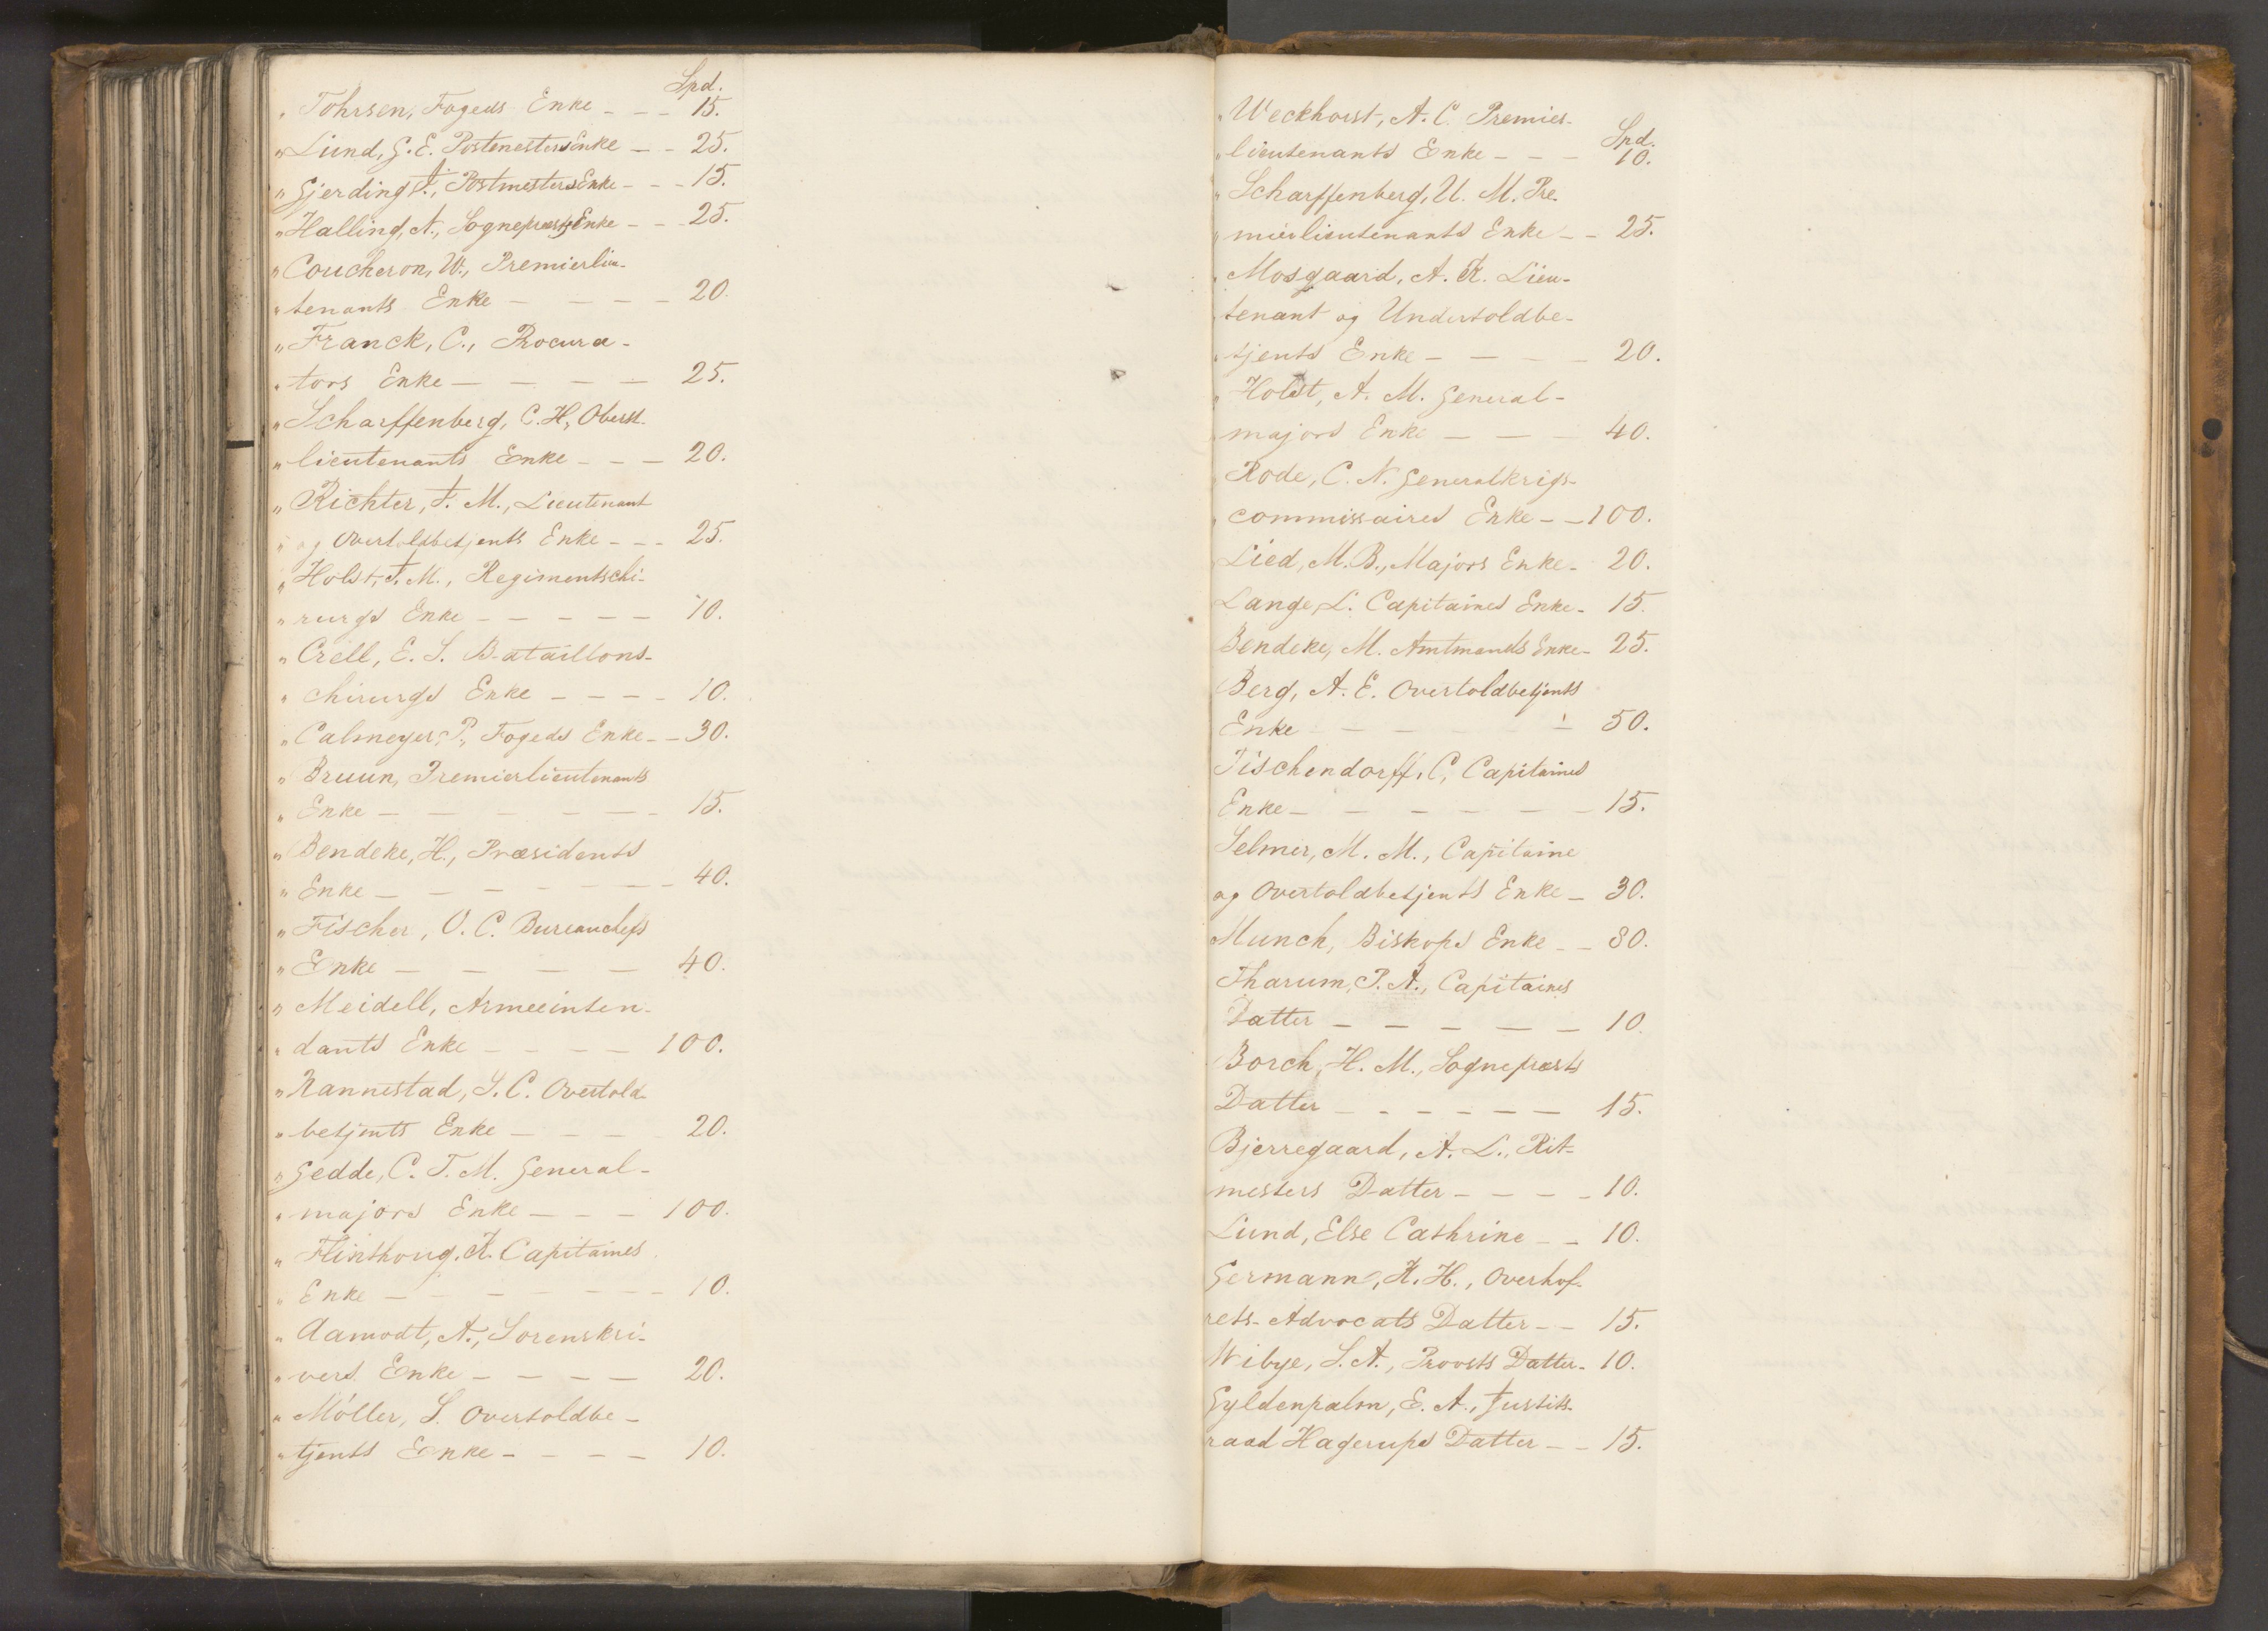 Spd.
„ Tohrsen, Fogeds Enke - - - 15.
„ Lund, G. E. Postmesters Enke - - 25.
„ Gjerding, J., Postmesters Enke - - - 15.
„ Halling, A., Sognepræsts Enke - - - 25.
„ Coucheron, W., Premierlieu-
„ tenants Enke - - - - 20.
„ Franck, C., Procura-
„ tors Enke - - - - 25.
„ Scharffenberg, C. H., Oberst-
„ lieutenants Enke - - - 20.
„ Richter, J. M., Lieutenant
„ og Overtoldbetjents Enke - - - 25.
„ Holst, J. M., Regimentschi-
„ rurgs Enke - - - - - 10.
„ Crell, E. S. Bataillons-
„ chirurgs Enke - - - - 10.
„ Calmeyer, P., Fogeds Enke - - 30.
„ Bruun, Premierlieutenants
„ Enke - - - - - - - 15.
„ Bendeke, H., Præsidents
„ Enke - - - - - - - 40.
„ Fischer, O. C. Bureauchefs
„ Enke - - - - - 40.
„ Meidell, Armeeinten-
„ dants Enke - - - - 100.
„ Nannestad, S. C. Overtold-
„ betjents Enke - - - 20.
„ Gedde, C. T. M. General-
„ majors Enke - - - 100.
„ Flinthoug, K. Capitaines
„ Enke - - - - - - - 10.
„ Aamodt, A., Sorenskri-
„ vers Enke - - - - 20.
„ Möller, S. Overtoldbe-
„ tjents Enke - - - - 10.
„ Weckhorst, A. C. Premier-
Spd.
„ lieutenants Enke - - - 10.
„ Scharffenberg, U. M. Pre-
„ mierlieutenants Enke - - 25.
„ Mosgaard, A. K. Lieu-
tenant og Undertoldbe-
„ tjents Enke - - - - 20.
„ Holst, A. M. General-
majors Enke - - - 40.
Rode, C. N. Generalkrigs-
„ commissaires Enke - - 100.
Lied, M. B., Majors Enke - 20.
Lange, L. Capitaines Enke - 15.
Bendeke, M. Amtmands Enke - 25.
Berg, A. E. Overtoldbetjents
Enke - - - - - - 50.
Tischendorff, C. Capitaines
Enke - - - - - - - 15.
Selmer, M. M., Capitaine
og Overtoldbetjents Enke - 30.
Munch, Biskops Enke - - 80.
Tharum, P. A., Capitaines
Datter - - - - - - 10.
Borch, H. M., Sognepræsts
Datter - - - - - - 15.
Bjerregaard, A. L., Rit-
mesters Datter - - - - 10.
Lund, Else Cathrine - - 10.
Germann, K. H., Overhof-
rets-Advocats Datter - - 15.
Wibye, S. A., Provsts Datter - 10.
Gyldenpalm, E. A., Justits-
raad Hagerups Datter - - 15.